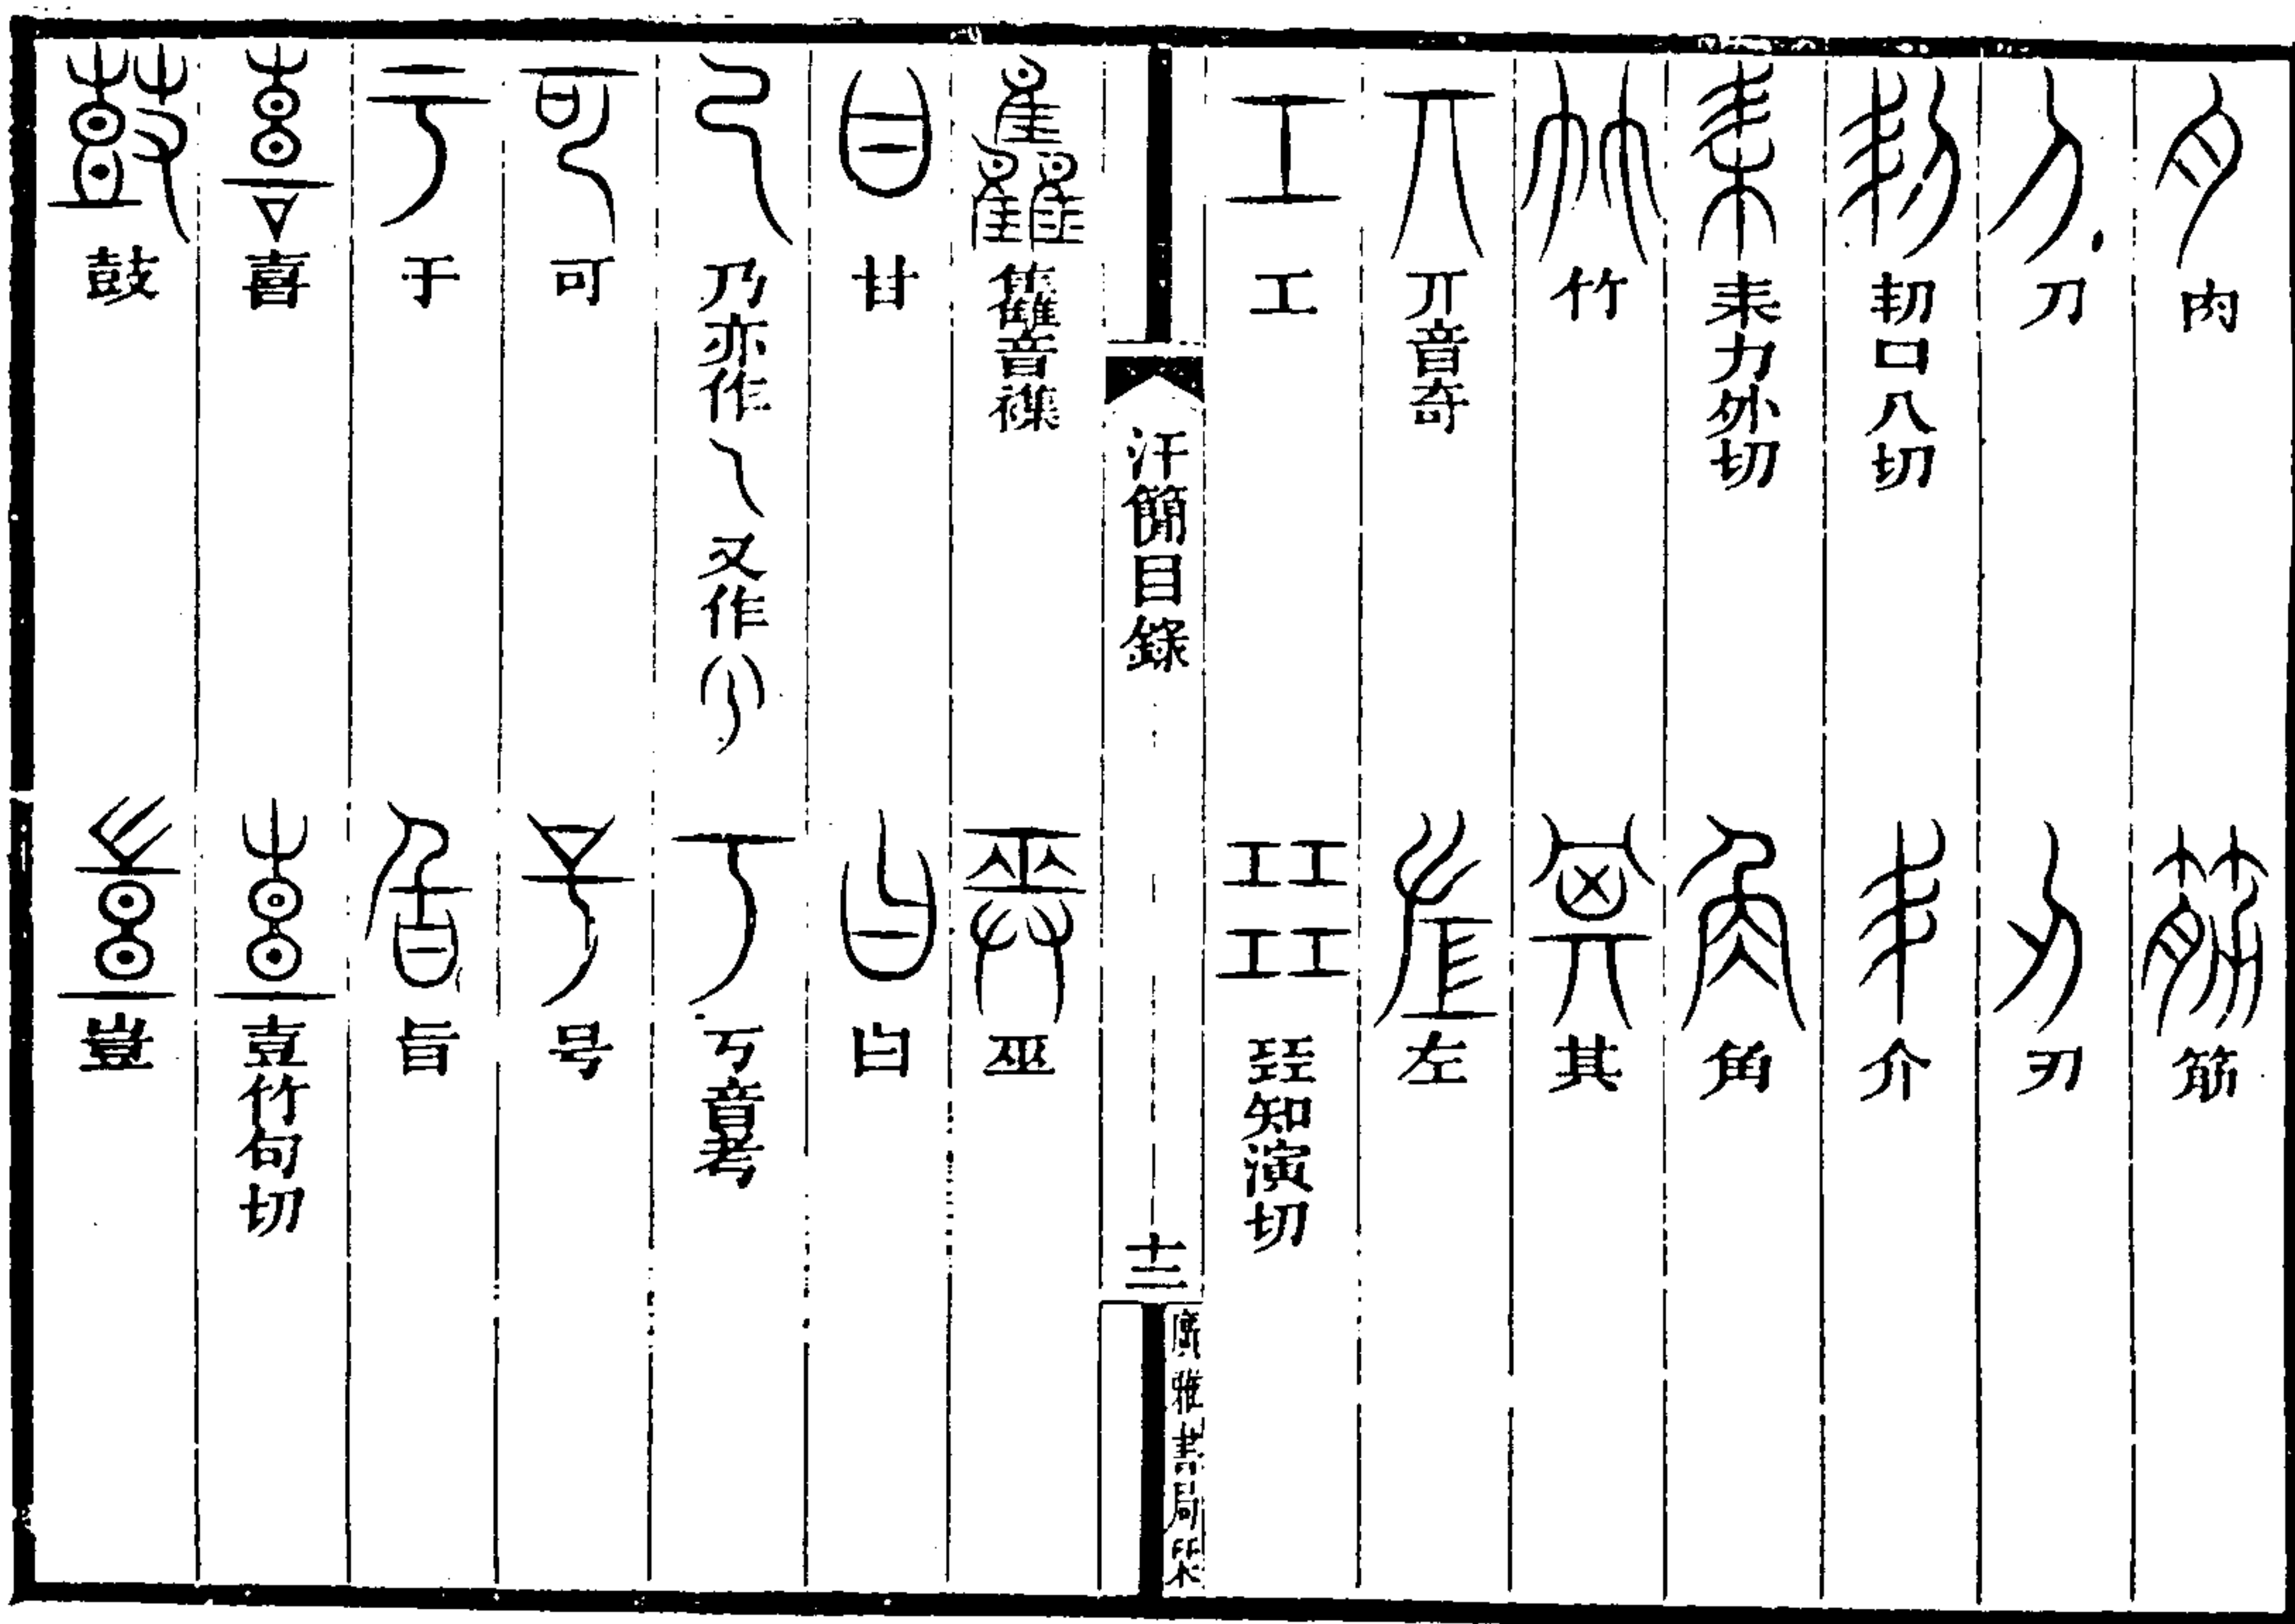 肉 筋
刀 刃
㓞口八切 介
耒力外切 角
竹 其
丌音奇 左
工 㠭知演切
汗簡目錄 十三 廣雅書局栞
雥音襍 巫
甘 曰
乃亦作 又作 丂音考
可 号
于 旨
喜 壴竹句切
鼓 豈